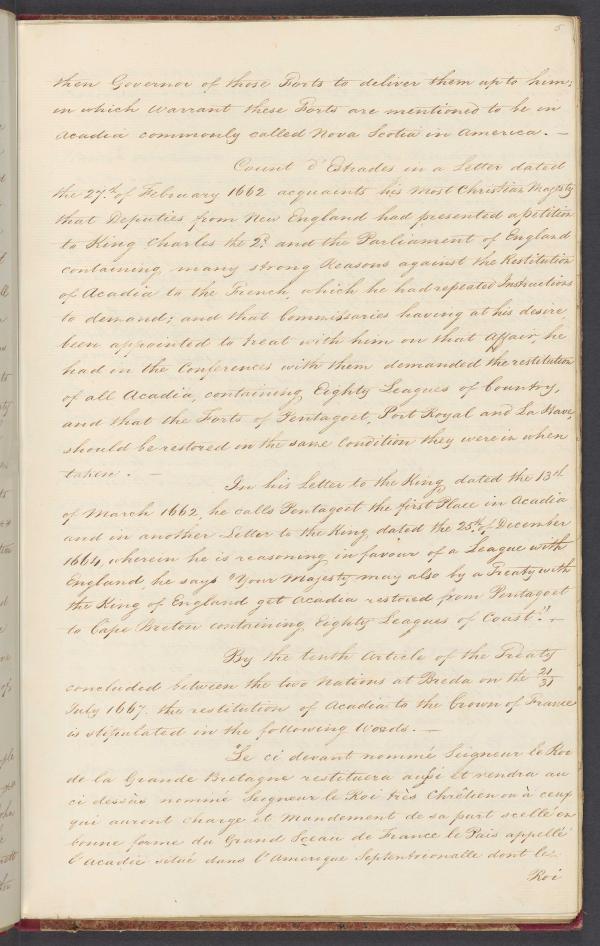 5
then Governor of those Forts to deliver them up to him;
in which Warrant these Forts are mentioned to be in
Acadia commonly called Nova Scotia in America. —
Count d'Estrades in a Letter dated
the 27th of February 1662 acquaints his most Christian Majesty
that Deputies from New England had presented a petition
to King Charles the 2d. and the Parliament of England
containing many strong Reasons against the Restitution
of Acadia to the French, which he had repeated Instructions
to demand; and that Commissaries having at his desire,
been appointed to treat with him on that Affair, he
had in the Conferences with them demanded the restitution
of all Acadia, containing Eighty Leagues of Country,
and that the Forts of Pentagoet, Port Royal and La Have,
should be restored in the same Condition they were in when
taken. —
In his Letter to the King dated the 13th
of March 1662, he calls Pentagoet the first Place in Acadia
and in another Letter to the King dated the 25th of December
1664, wherein he is reasoning in favour of a League with
England, he says "Your Majesty may also by a Treaty with
the King of England get Acadia restored from Pentagoet
to Cape Breton containing Eighty Leagues of Coast." —
By the tenth Article of the Treaty
concluded between the two Nations at Breda on the 21/31
July 1667. the restitution of Acadia to the Crown of France
is stipulated in the following Words. —
"Le ci devant nommé Seigneur le Roi
de la Grande Bretagne restituera aussi et rendra au
ci dessùs nommé Seigneur le Roi très Chrêtien ou à ceux
qui auront charge et Mandement de sa part scellé en
bonne forme du Grand Sceau de France le Païs appellé
l'Acadie situé dans l'Amerique Septentrionalle dont le
Roi